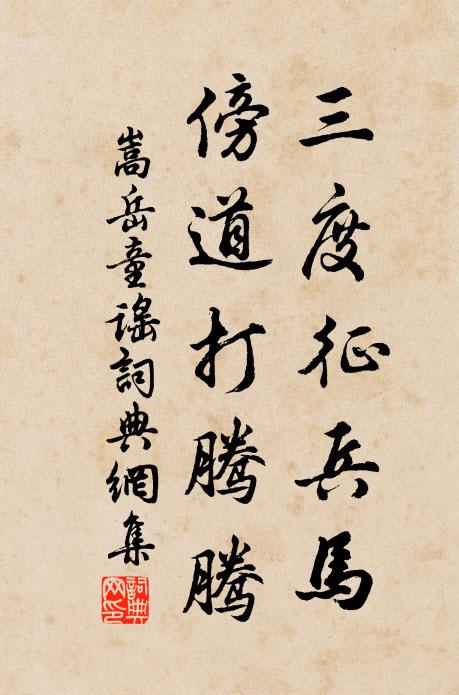 三度征兵馬
傍道打騰騰
嵩岳童謠詞典網集
詞典網印